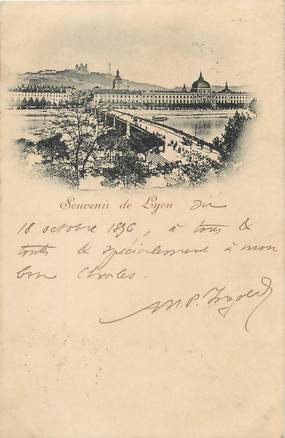 Souvenir de Lyon du
18 octobre 1896, à tous &
toutes & spécialement à mon
bon Charles.
M. P.